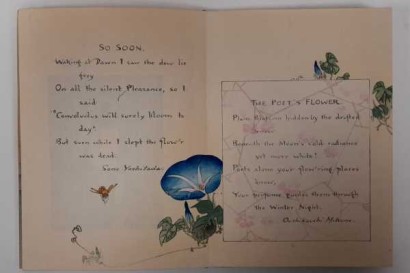 SO SOON.
Waking at Dawn I saw the dew lie
On all the silent Pleasance, so I
said
"Convolvulus will surely bloom to
day!
But even while I slept the flow'r
was dead.
THE POET'S FLOWER
Plum Blossom hidden by the drifted
Beneath the bloom's cold radiance
yet more white!
your flow'ring places
Your perfume guides them through
the Winter Night.